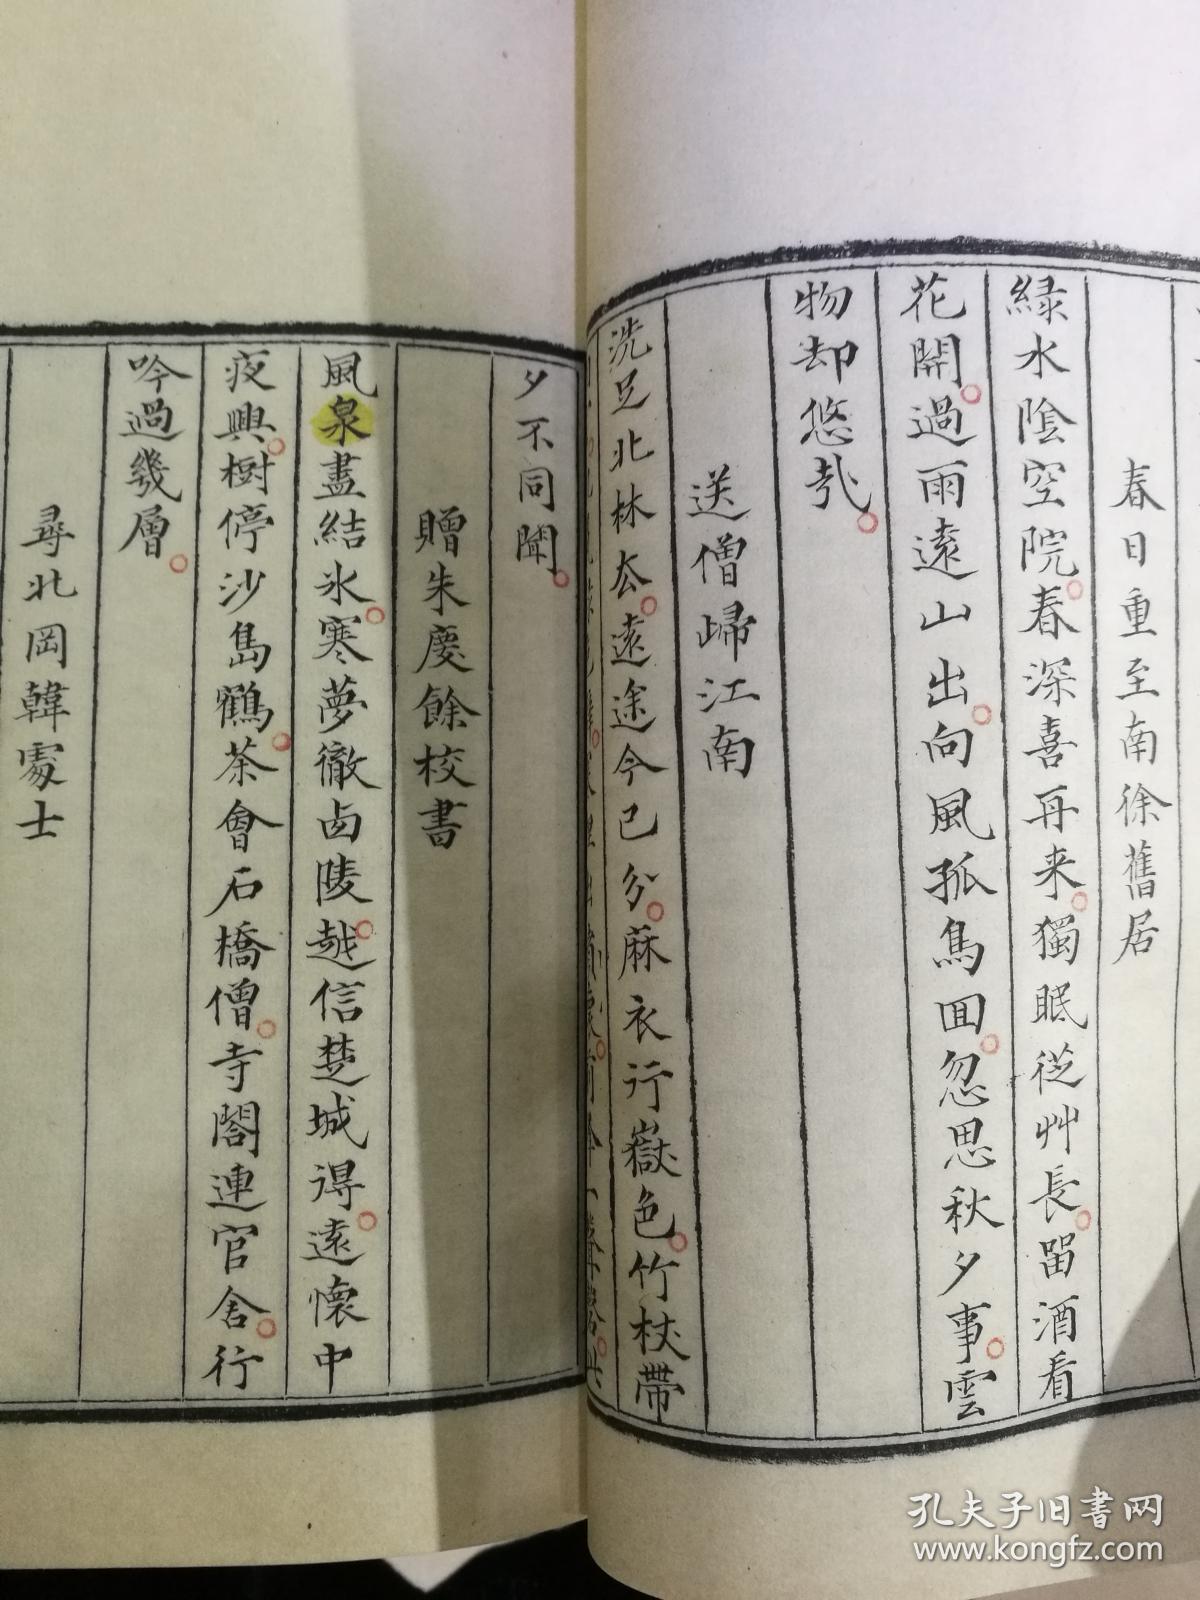 春日重至南徐舊居
緑水陰空院春深喜再来獨眠從艸長畱酒看
花開過雨遠山出向風孤鳥囬忽思秋夕事雲
物却悠哉
送僧歸江南
洗足北林去遠途今已分麻衣行嶽色竹杖帶
夕不同聞
贈朱慶餘校書
風泉盡結氷寒夢徹西陵越信楚城得遠懷中
夜興樹停沙島鶴茶會石橋僧寺閣連官舍行
吟過幾層
尋北岡韓處士
孔夫子旧书网
www.kongfz.com